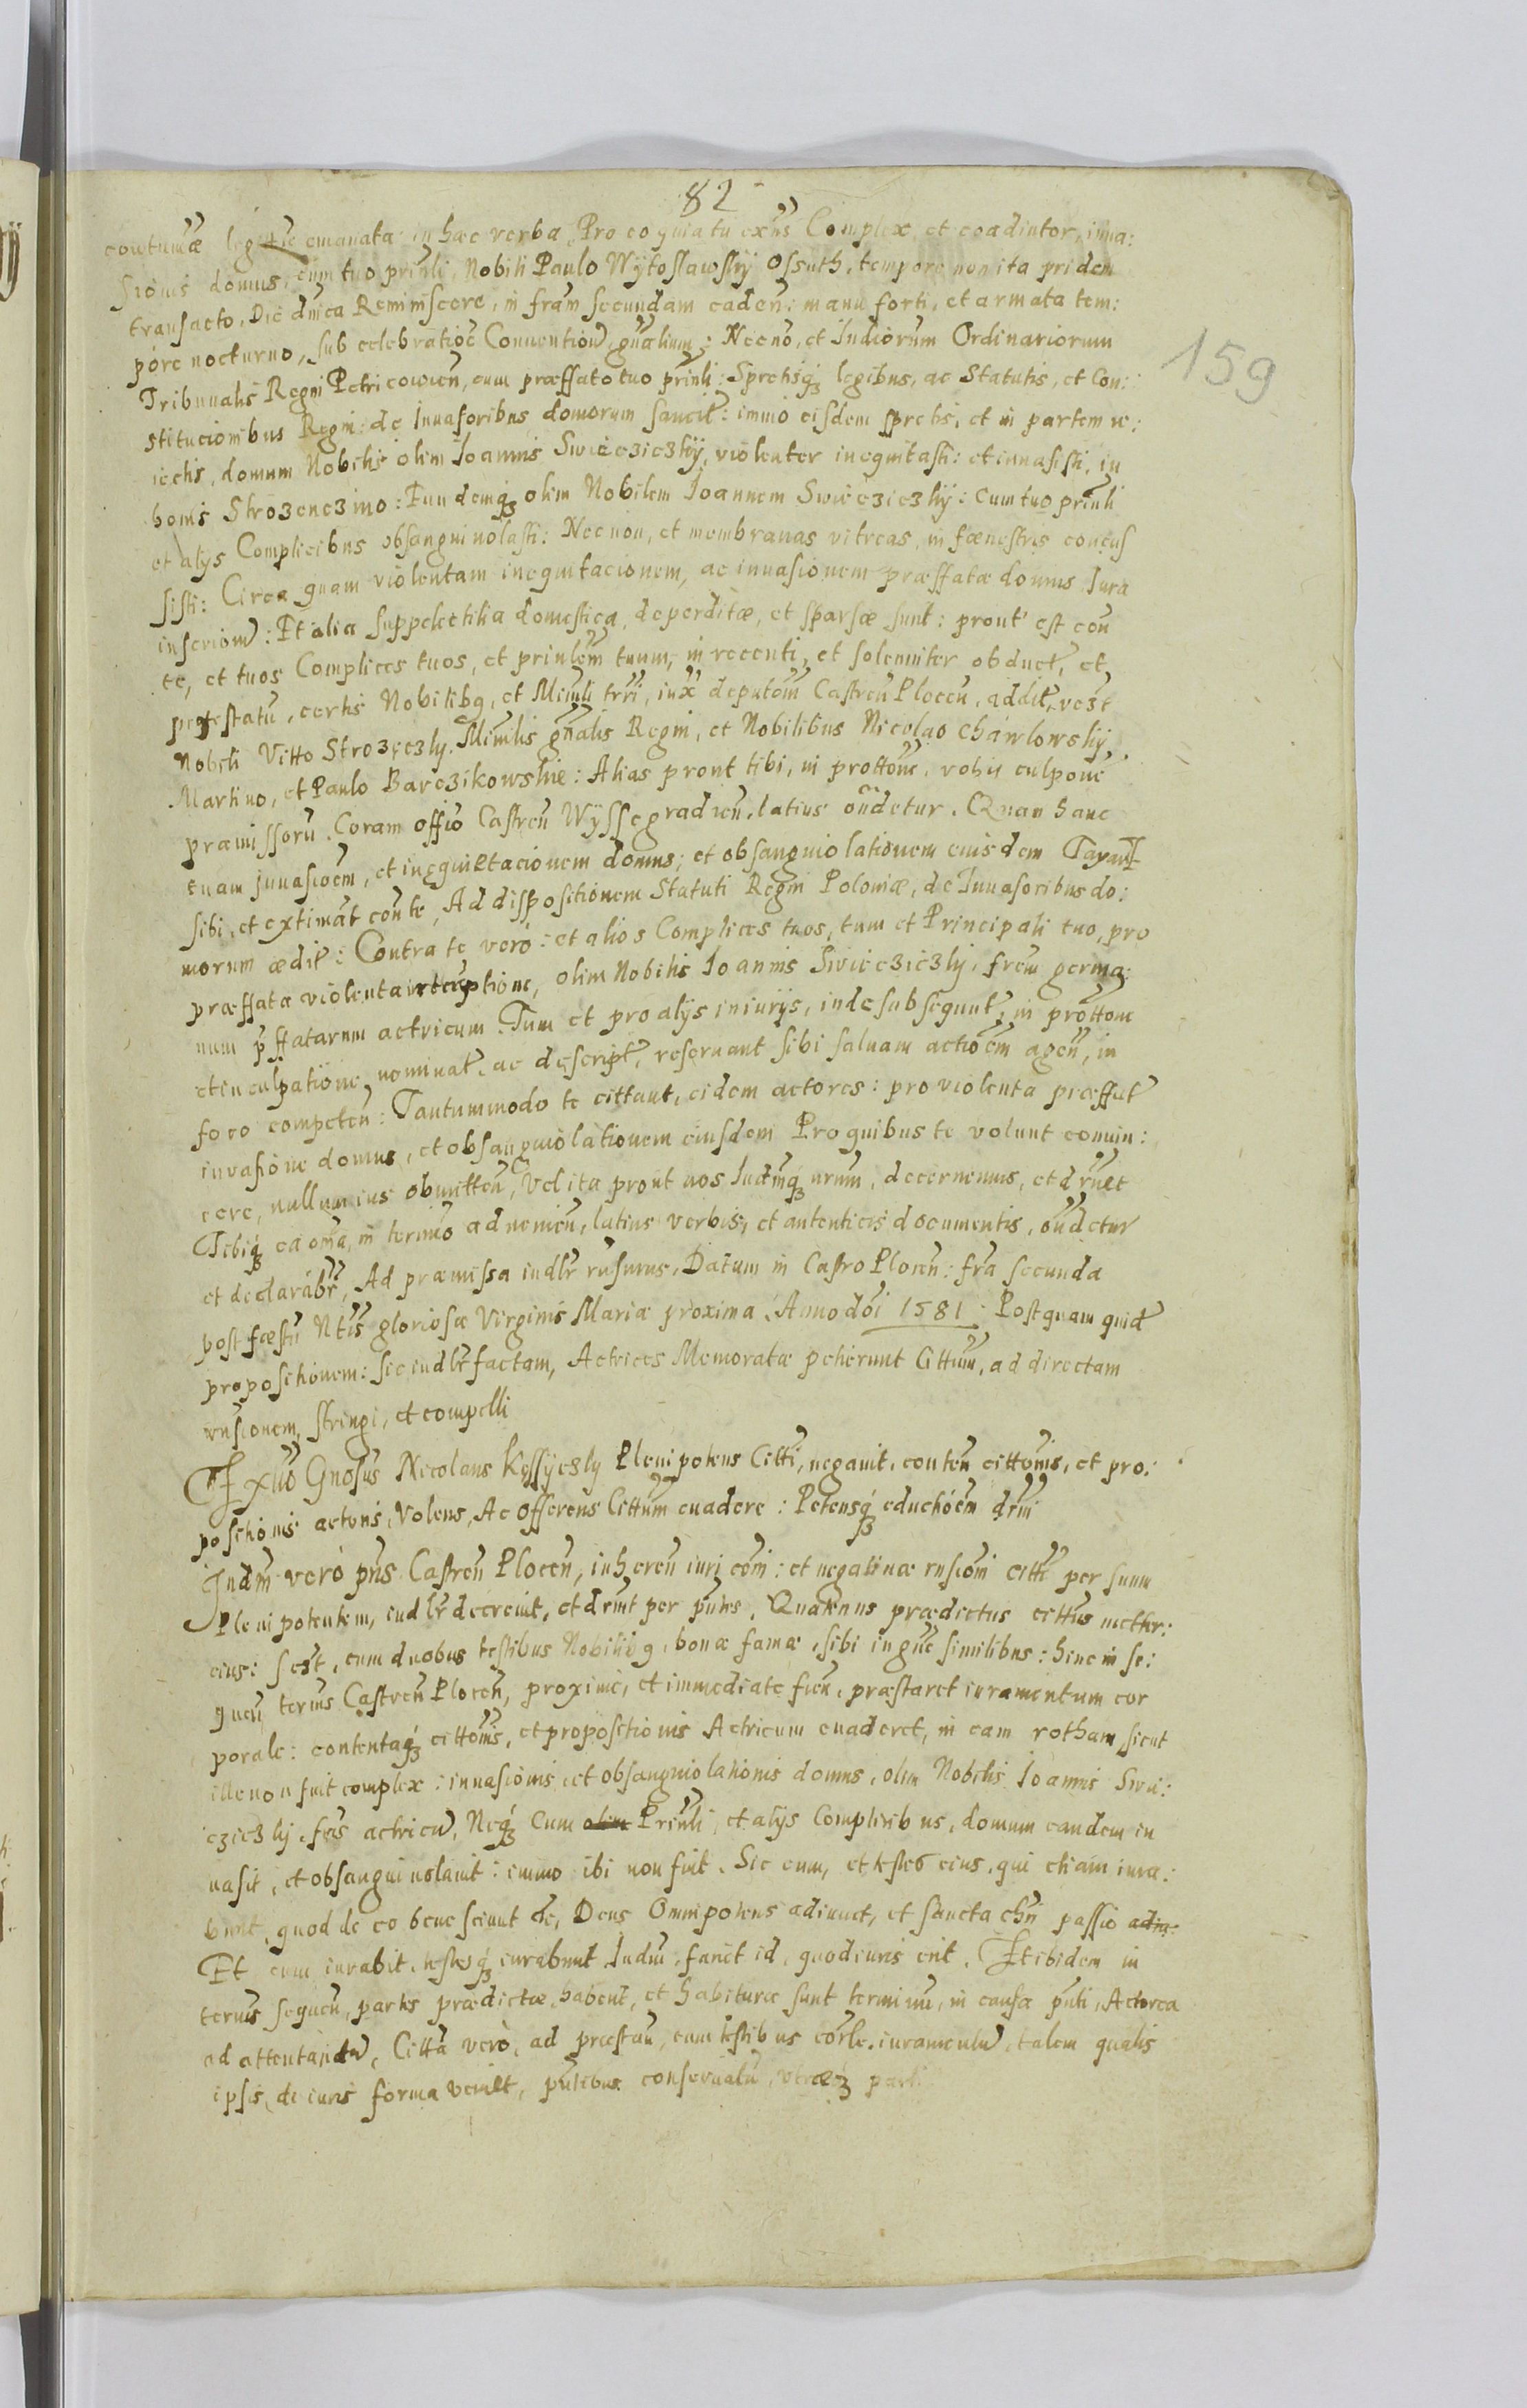 82
159
contumã legittie emanata in hæc verba. Pro eo quia tu exñs Complex et coadiutor, inua:
sionis domus, cum tuo prinli, Nobili Paulo Wÿtoslawskÿ Ossuth, tempore non ita pridem
transacto, Die dnica Reminiscere, in fram secundam caden: manu forti, et armata tem:
pore nocturno, sub celebratioe Conuention gnalium: Necno, et Iudiorum Ordinariorum
Tribunalis Regni Petricouien, cum præffato tuo prinli: Spretisq legibus, ac Statutis, et Con:
stitucionibus Regni: de Inuasoribus domorum sancit: immo eisdem spretis, et in partem re:
iectis, domum Nobilis olim Ioannis Swiecziczkÿ, violenter inequitasti: et innasisti, in
bonis Strozenczino: Eundemq olim Nobilem Ioannem Swiecziczkÿ: Cum tuo prinli
et alÿs Complicibus obsanguinolasti: Necnon, et membranas vitreas, in fœnestris concus
sisti: Circa quam violentam inequitacionem, ac inuasionem præffatæ domus Iura
inscriom: Et alia suppelectilia domestica, deperditæ, et sparsæ sunt: prout est con
te, et tuos Complices tuos, et prinlem tuum, in recenti, et solenniter obduct, et
protestatu, certis Nobilibq, et Minili trri, iux deputom Castren Plocen, addit, vest
Nobili Vitto Strozeczky. Minilis gnalis Regni, et Nobilibus Nicolao Chawlowskÿ
Martino, et Paulo Barczikowskie: Alias prout tibi, in prottone, rohis culpone
præmissoru. Coram offio Castren Wÿssegradien, latius ondetur. Quam hanc
tuam jnuasioem, et inequitacionem domus, et obsanguiolationem eiusdem Taxant
sibi, et extimat con te, Ad dispositionem Statuti Regni Poloniæ, de Inuasoribus do:
morum ædit: Contra te vero: et alios Complices tuos, tum et Principali tuo, pro
præffata violenta interemptione, olim Nobilis Ioannis Swiecziczky, frem germa:
num pffatarum actricum. Tum et pro alÿs iniurÿs, inde subsequut, in prottone
et inculpatione nominat, ac descript, reseruant sibi saluam actioem agen, in
foro competen: Tantummodo te cittant, eidem actores: pro violenta præffat
inuasione domus, et obsanguiolationem eiusdem Pro quibus te volunt conuin:
cere, nullum ius obmitten, Vel ita prout nos Iudmq nrum, decernemus, et druet
Tibiq ea oma, in termio adueniem, latius verbis, et autenticis documentis, ondetur
et declarabr, Ad præmissa iudlr rnsurus. Datum in Castro Plocen: fra secunda
post fæstu Ntis gloriosæ Virginis Mariæ proxima. Anno doi 1581. Postquam quid
propositionem: sic iudlr factam, Actrices Memoratæ petierunt Cittum, ad directam
rnsionem, stringi, et compelli
Exuo Gnosus Nicolaus Kęssyczky Plenipotens Citti, negauit, conten cittonis, et pro:
positionis actoris, Volens, Ac Offerens Cittum euadere: Petensq eductioem drni
Iudm vero pns Castren Plocen, inheren iuri coni: et negatiuæ rnsioni citti per suum
Plenipotentem, iudlr decreuit, et drnit per pntes. Quatenus prædictus cittus metter:
cius: sest, cum duobus testibus Nobilibq, bonæ famæ, sibi in gne similibus: hinc in se:
quen termis Castren Plocen, proxime, et immediate fien, præstaret iuramentum cor
porale: contentaq cittonis, et propositionis Actricum euaderet, in eam rotham, sicut
ille non fuit complex: inuasionis, et obsanguiolationis domus, olim Nobilis Ioannis Swi:
cziczkÿ, fris actricu, Neq Cum olim Prinli, et alÿs Complicibus, domum eandem in
uasit, et obsanguinolauit: immo ibi non fuit. Sic eum, et testes eius, qui etiam iura:
bunt, quod de eo bene sciunt etc, Deus Omnipotens adiuuet, et sancta chri passio adiu:
Et cum iurabit, testesq iurabunt Iudm, faciet id, quod iuris erit. Et ibidem in
termis sequen, partes prædictæ, habent, et habituræ sunt terminu, in causa pnti, Actorea
ad attentandu, Citta vero, ad præstan, cum testibus corle iuramentu, talem qualis
ipsis, de iuris forma veniet, pntibus conseruatu, vtræq parti